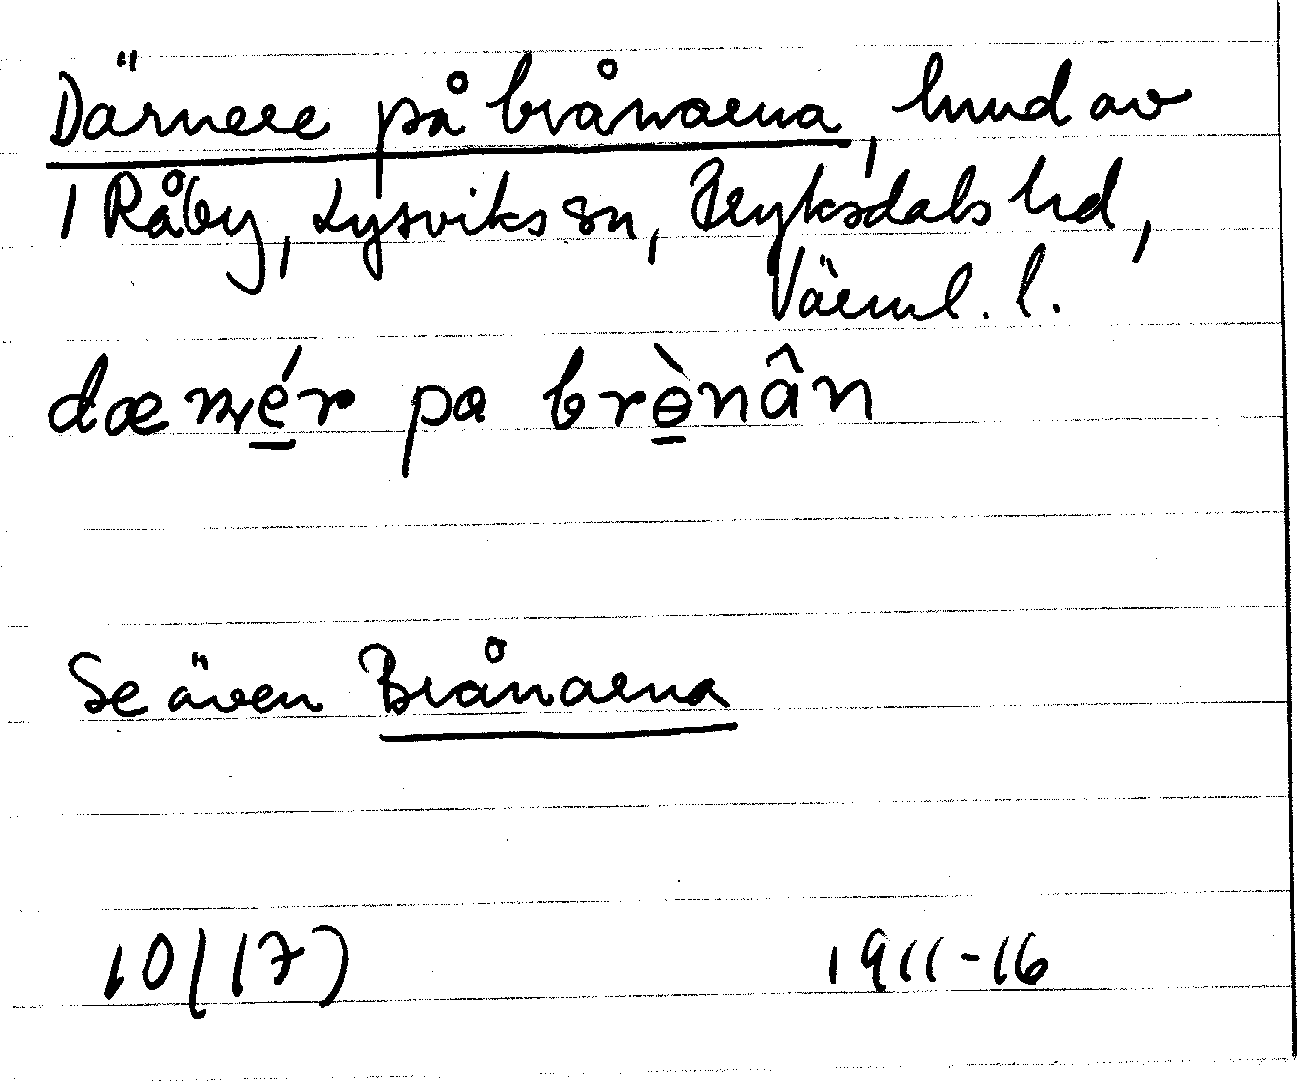 Därnere på brånarna, hmd av
1 Råby, Lysviks sn, Fryksdals hd,
Värml. l.
dæ nér pa brɵ̀nân
Se även Brånarna
10(17)
1911-16